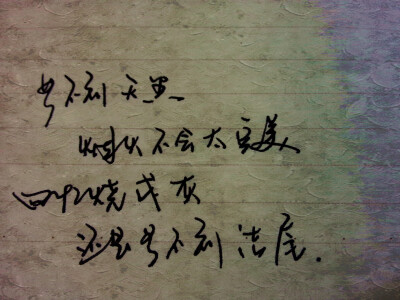 等不到天黑
烟火不会太完美
回忆烧成灰
还是等不到结尾.